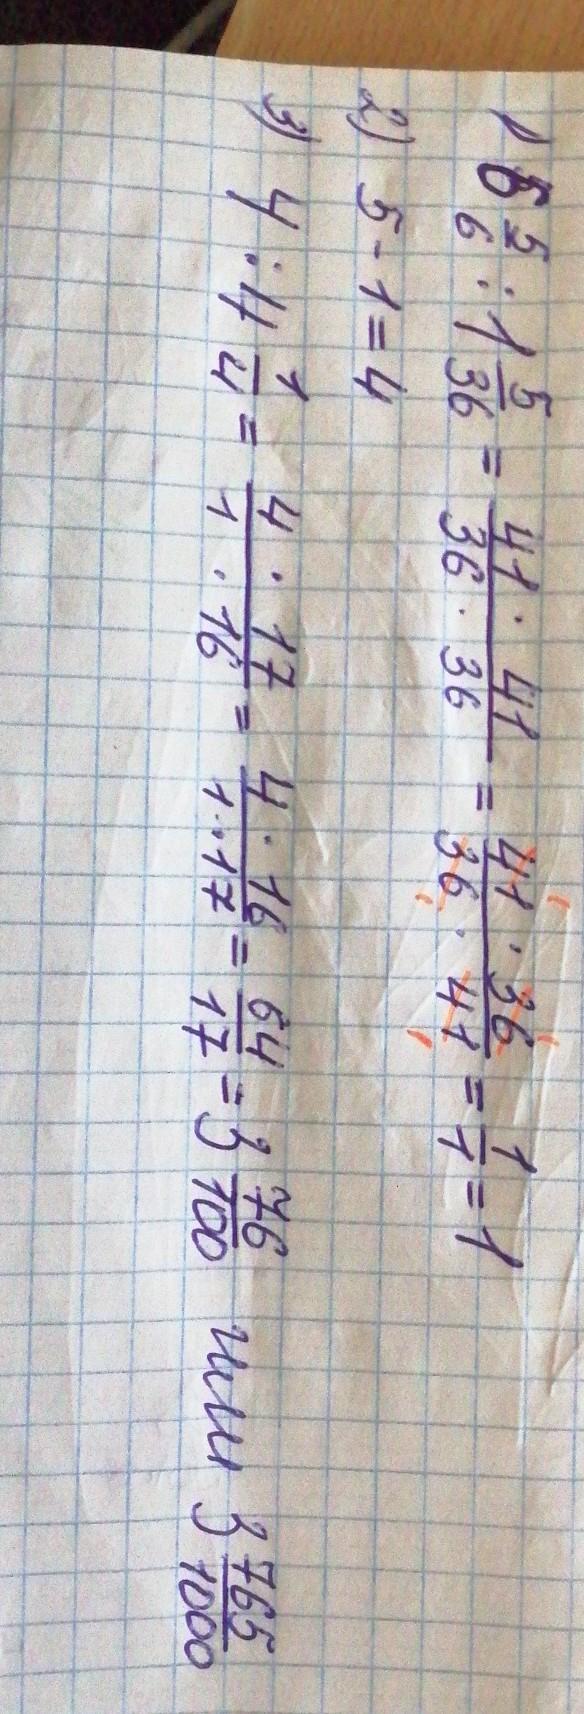 1) 6 5/6 : 1 5/36 = 41 · 41 / 36 · 36 = 41 · 36 / 36 · 41 = 1/1 = 1
2) 5 - 1 = 4
3) 4 : 4 1/4 = 4 · 17 / 1 · 16 = 4 · 16 / 1 · 17 = 64/17 = 3 76/100 или 3 765/1000